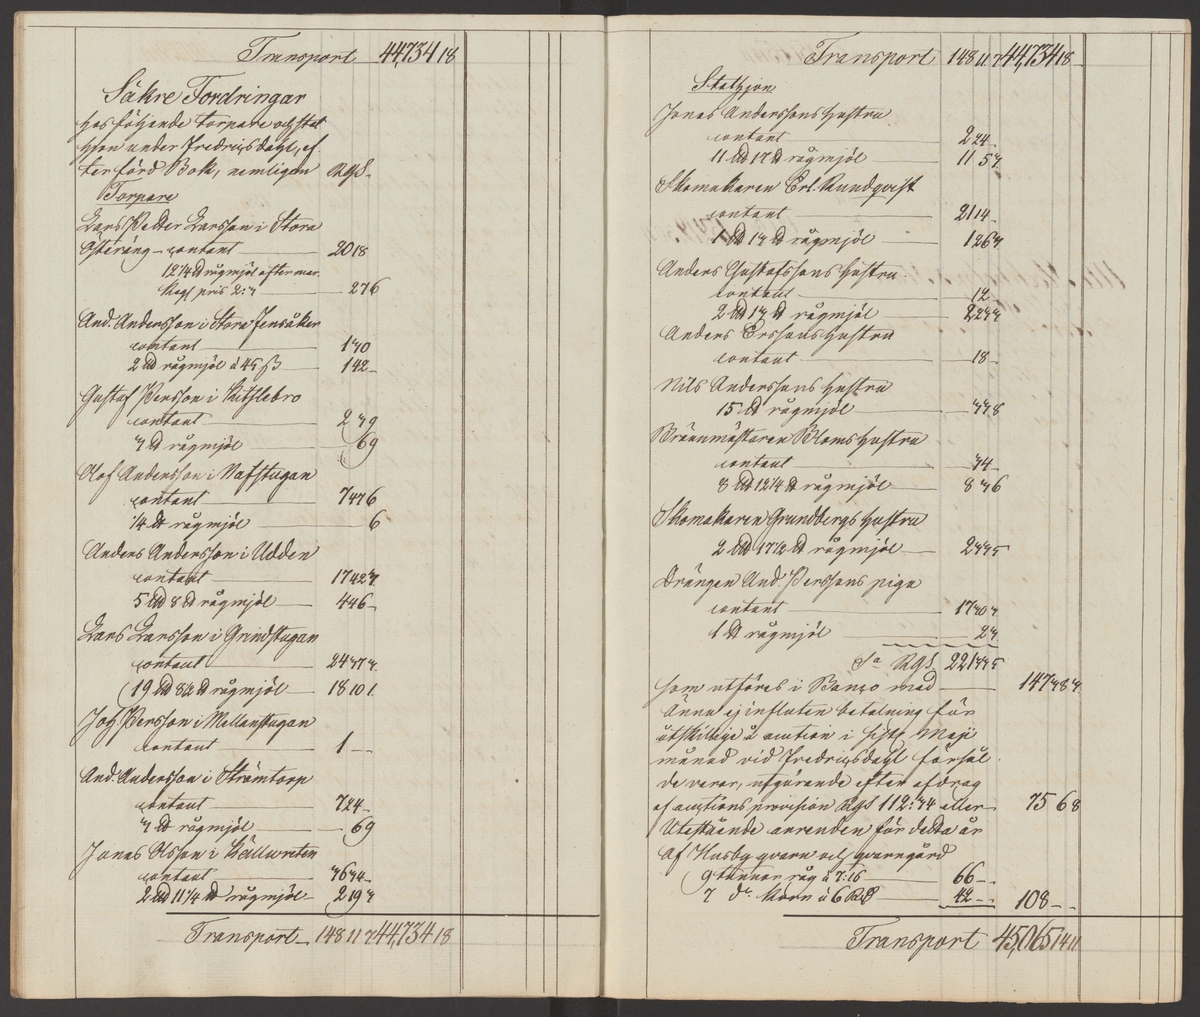 Transport 44,734 18
Säkre Fordringar
hos följande torpare och stat
hjon under Fredricsdahl, ef.
ter förd Bok, nemligen RGS.
Torpare
Lars Petter Larsson i Stora
Österäng - contant 20 18
12 1/4 ℔ rågmjöl efter mar.
kegs pris 2:4 2 7 6
And. Andersson i Stora
contant 1 40
2 L℔ rågmjöl à 45 β 1 42
Gustaf Persson i
contant 2 49
4 ℔ rågmjöl 6 9
Olof Andersson i Nafstugan
contant 7 47 6
1/4 ℔ rågmjöl 6
Anders Andersson i Udden
contant 17 42 4
5 L℔ 8 ℔ rågmjöl 4 46
Lars Larsson i Grindstugan
contant 24 47 4
19 L℔ 8 1/2 ℔ rågmjöl 18 10 1
Joh. Persson i Mellanstugan
contant 1 - -
And. Andersson i Strömtorp
contant 7 24
4 ℔ rågmjöl 6 9
Jonas Olsson i Källureten
contant 46 44
2 L℔ 11 1/4 ℔ rågmjöl 2 19 4
Transport 148 11 7 44,734 18
Transport 148 11 7 44,734 18
Stathjon
Jonas Anderssons hustru
contant 2 24
11 L℔ 17 ℔ rågmjöl 11 5 4
Skomakaren Erl. Rundqvist
contant 21 14
1 L℔ 14 ℔ rågmjöl 1 26 4
Anders Gustafssons hustru
contant 12
2 L℔ 14 ℔ rågmjöl 2 24 4
Anders Erssons hustru
contant 18
Nils Anderssons hustru
15 ℔ rågmjöl 44 8
Brännmästaren Bloms hustru
contant 44
8 L℔ 12 1/4 ℔ rågmjöl 8 46
Skomakaren Grundbergs hustru
2 L℔ 17 1/2 ℔ rågmjöl 2 44 5
Drängen And. Perssons piga
contant 17 40 4
1 ℔ rågmjöl 2 4
Sa RGS 221 44 5
som utföres i Banco med 147 48 4
Ännu ej influten betalning för
åtskillige å auction i sistl. Maji
månad vid Fredricsdahl försål
de varor, utgörande efter afdrag
af auctions provision RGS 112:44 eller 75 6 8
Utestående arrenden för detta år
af Husby qvarn och qvarngård
9 tunnor råg à 7:16 66 - -
7 do Korn à 6 Rd 42 - - 108 - -
Transport 45,065 14 11